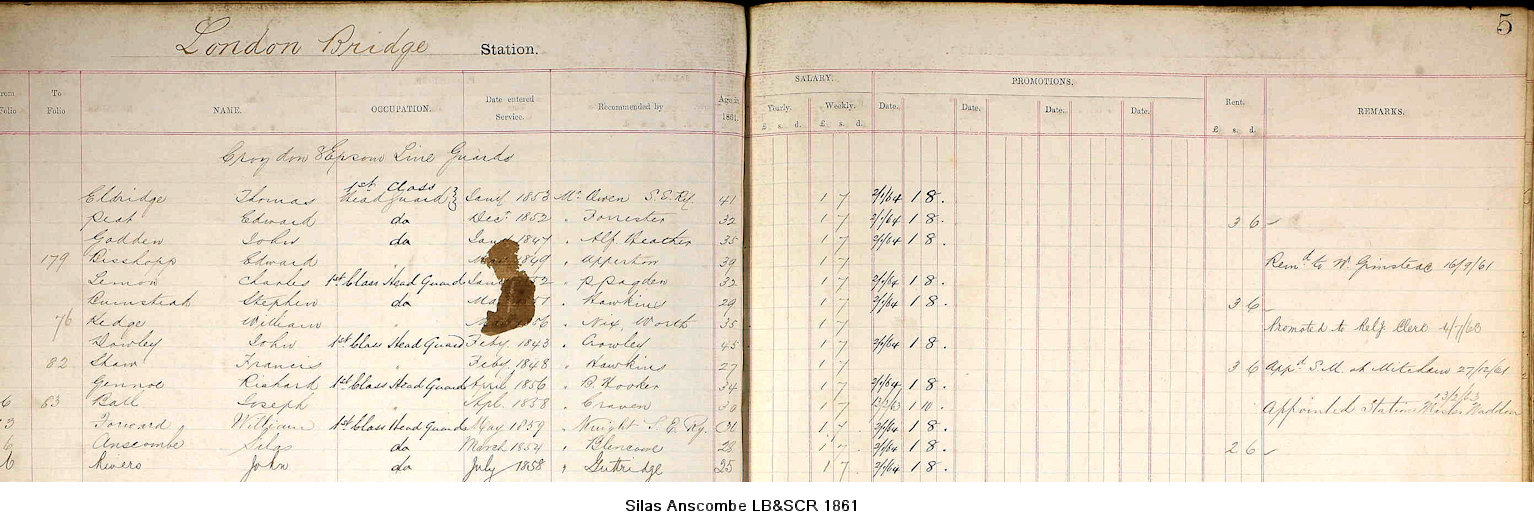 5
London Bridge Station.
SALARY. PROMOTIONS.
From Folio To Folio NAME. OCCUPATION. Date entered Service. Recommended by Age in 1861. Yearly. £ s. d. Weekly. £ s. d. Date. Date. Date. Date. Rent. £ s. d. REMARKS.
Croydon & Epsom Line Guards
Eldridge Thomas 1st Class Head Guard Jany 1853 Mr Owen S.E.Ry. 41 1 7 1 8 .
Peat Edward do Decr 1852 " Forrester 32 1 7 1 8 . 3 6
Godden John do 1847 " Alf Heather 35 1 7 1 8 .
179 Bisshopp Edward 1849 " Apperton 39 1 7 Remd to W. Grinstead 16/9/61
Lemon Charles 1st Class Head Guard " P Pagden 32 1 7 1 8 .
Stephen do " Hawkins 29 1 7 1 8 . 3 6
76 Kedge William " Nix, Worth 35 1 7 Promoted to Relf Clerk
John 1st Class Head Guard Feby 1843 " Crowley 45 1 7 1 8 .
82 Shaw Francis " Feby 1848 " Hawkins 27 1 7 3 6 Appd S.M. at Mitcham 27/12/61
Richard 1st Class Head Guard April 1856 " B. Hooker 34 1 7 1 8 .
6 83 Ball Joseph " Apl. 1858 " Craven 30 1 7 1 10 . Appointed Station Master Waddon 13/2/63
Forward William 1st Class Head Guard May 1859 " S.E. Ry. 1 7 1 8 .
6 Anscombe Silas do March 1854 " Blencowe 28 1 8 . 2 6
6 Rivers John do July 1858 " Guttridge 25 1 7 1 8 .
Silas Anscombe LB&SCR 1861